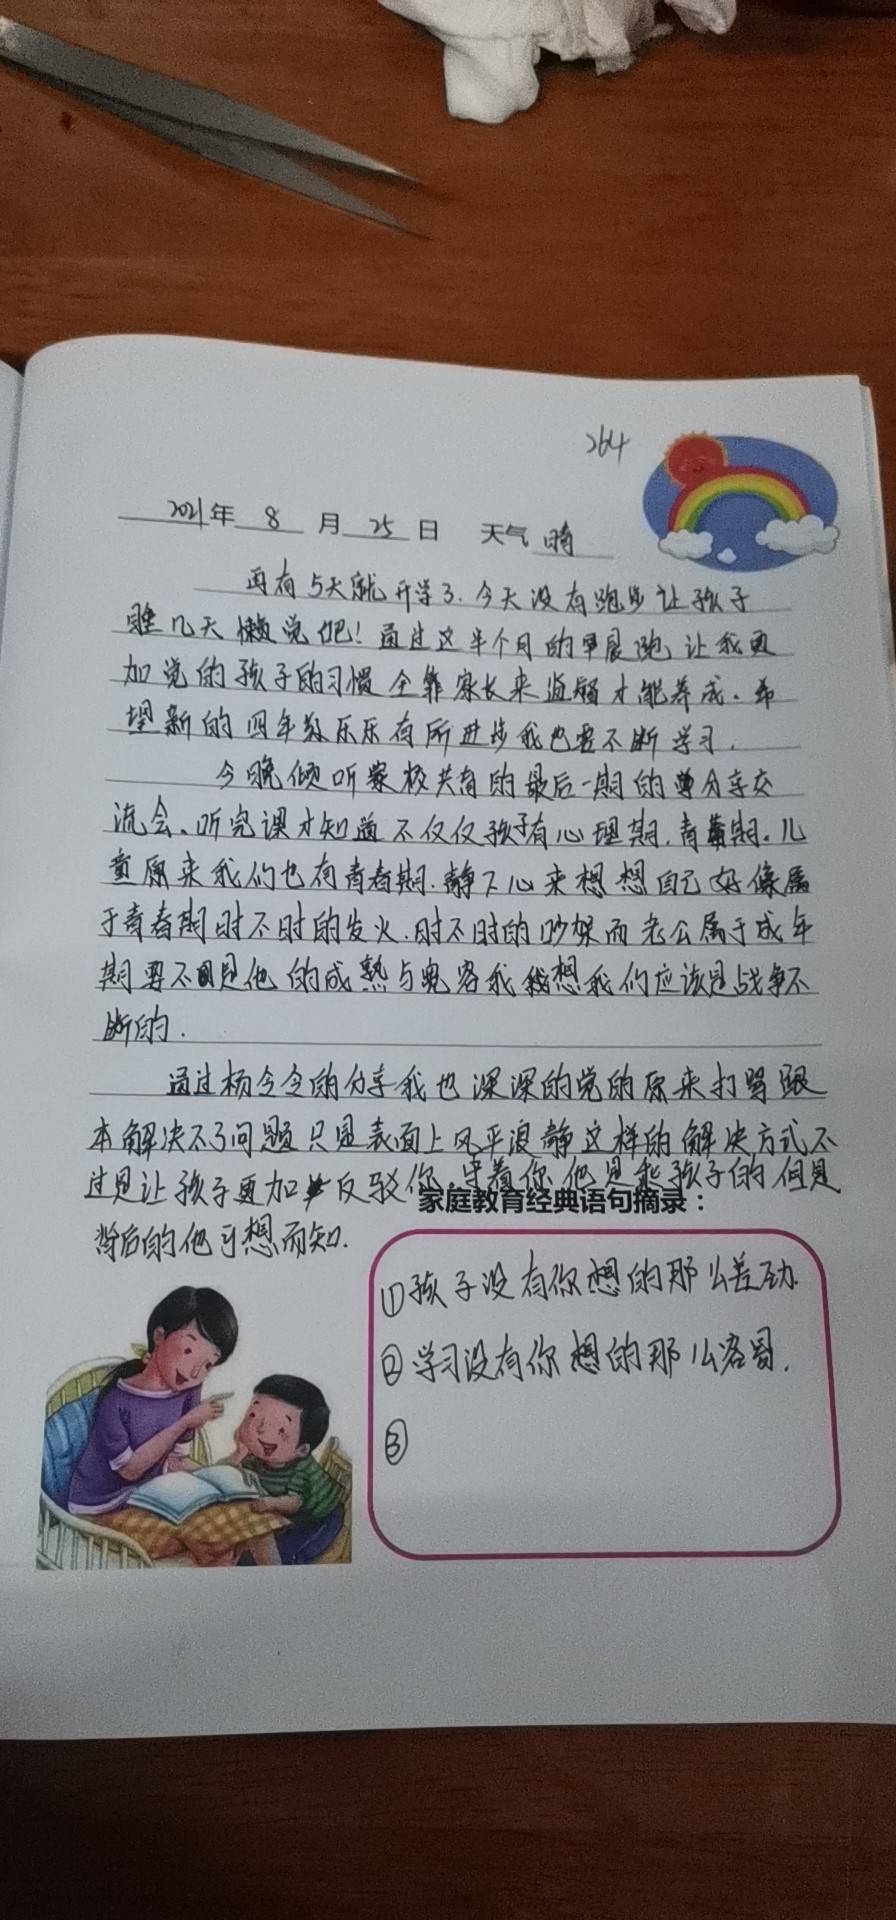 264
2021年 8 月 25 日 天气 晴
再有5天就开学了.今天没有跑步让孩子
睡几天懒觉吧!通过这半个月的早晨跑让我更
加觉的孩子的习惯全靠家长来监督才能养成.希
望新的四年级乐乐有所进步我也要不断学习.
今晚倾听家校共育的最后一期的分享交
流会.听完课才知道不仅仅孩子有心理期.青春期.儿
童原来我们也有青春期.静下心来想想自己好像属
于青春期时不时的发火.时不时的吵架而老公属于成年
期要不是他的成熟与宽容我想我们应该是战争不
断的.
通过杨令令的分享我也深深的觉的原来打骂跟
本解决不了问题只是表面上风平浪静这样的解决方式不
过是让孩子更加反驳你.守着你他是乖孩子的但是
背后的他可想而知.
家庭教育经典语句摘录：
①孩子没有你想的那么差劲.
②学习没有你想的那么容易.
③